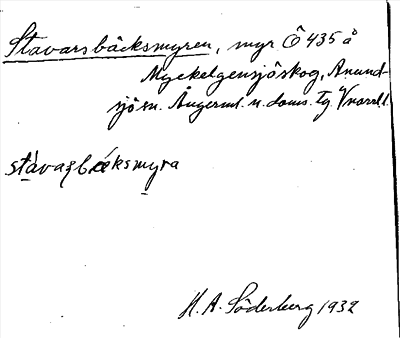 Stavarsbäcksmyren, myr Ö 435 å
Myckelgensjöskog, Anund-
sjö sn. Ångerml. n. doms. tg. V/norrl. l.
stávaʂbǽksmyra
H. A. Söderberg 1932